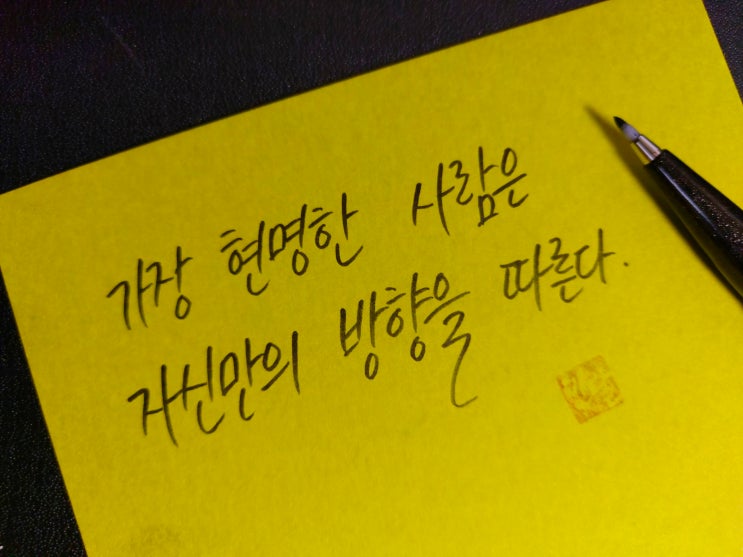 가장 현명한 사람은
자신만의 방향을 따른다.